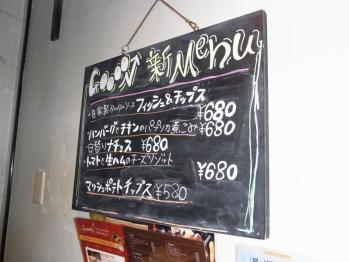 Goooon 新 Menu
・自家製タルタルソース フィッシュ&チップス
¥680
・ハンバーグとチキンのパプリカ煮こみ ¥680
・日替りナチュス ¥680
・トマトと生ハムのチーズリゾット
¥680
マッシュポテトチップス ¥580